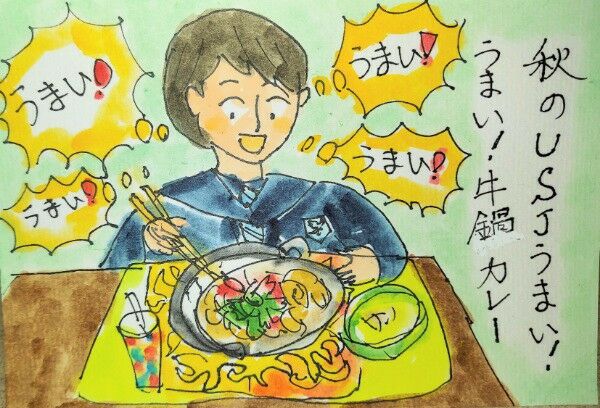 秋のUSJうまい!
うまい!牛鍋カレー
うまい!
うまい!
うまい!
うまい!